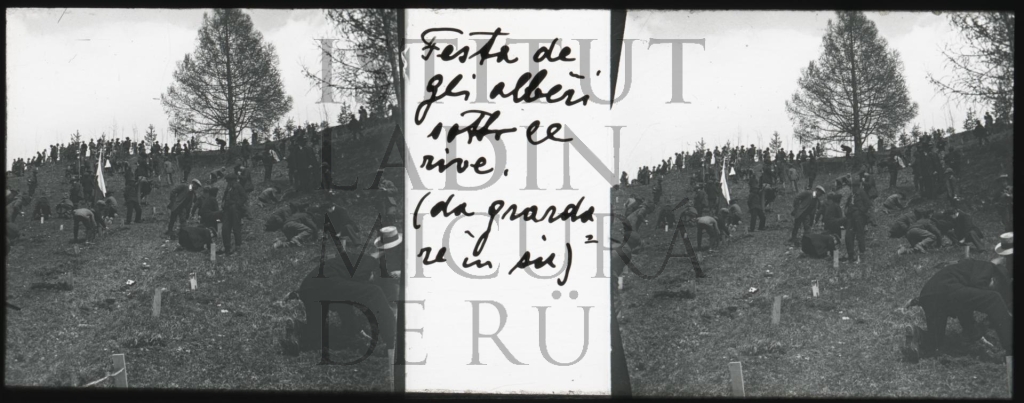 Festa de
gli alberi
sotto le
rive.
(da guarda
re in su) 2
ISTITUT
LADIN
MICURÁ
DE RÜ